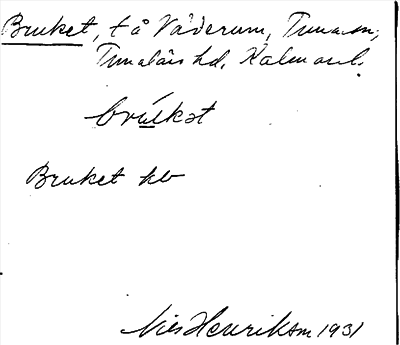 Bruket, t å Våderum, Tuna sn,
Tunaläns hd, Kalmar l.
brúkət
Bruket kb
Nils Henrikson 1931